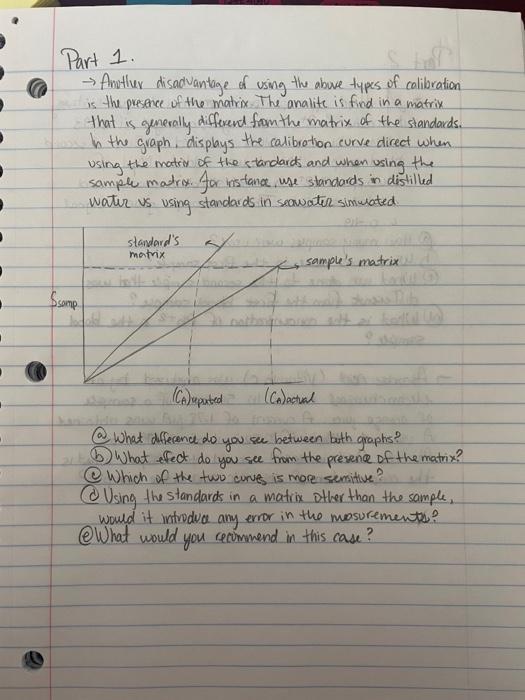 Part 1.
→ Another disadvantage of using the above types of calibration
is the presence of the matrix. The analite is find in a matrix
that is generally differend from the matrix of the standards.
In the graph, displays the calibration curve direct when
using the matrix of the standards and when using the
sample matrix. For instance, use standards in distilled
water vs. using standards in seawater simulated.
standard's
matrix
sample's matrix
Ssamp
(CA)reported (CA)actual
ⓐ What difference do you see between both graphs?
ⓑ What efect do you see from the presence of the matrix?
ⓒ Which of the two curves is more sensitive?
ⓓ Using the standards in a matrix other than the sample,
would it introduce any error in the mesurements?
ⓔ What would you recommend in this case?